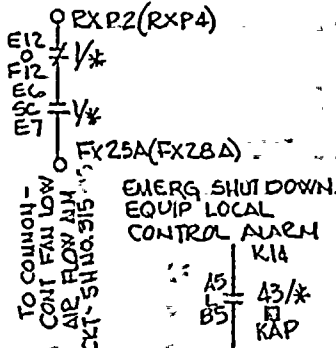 RXP.2(RXP4)
E12
O
F12
1/*
E6
SC
E7
1/*
FX25A(FX28A)
TO COMMON-
CONT FAN LOW
AIR FLOW ALM
CKT-SH NO.315
EMERG SHUT DOWN.
EQUIP LOCAL
CONTROL ALARM
K14
A5
L
B5
43/*
KAP